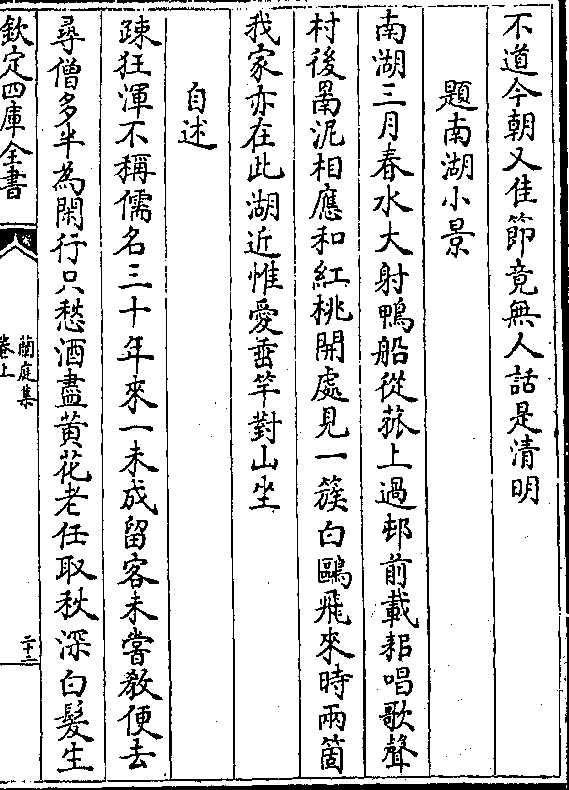 不道今朝又佳節竟無人話是清明
題南湖小景
南湖三月春水大射鴨船從菰上過邨前載耜唱歌聲
村後罱泥相應和紅桃開處見一簇白鷗飛來時兩箇
我家亦在此湖近惟愛垂竿對山坐
自述
疎狂渾不稱儒名三十年來一未成留客未嘗教便去
尋僧多半為閑行只愁酒盡黃花老任取秋深白髮生
欽定四庫全書
蘭庭集
卷上
二十二